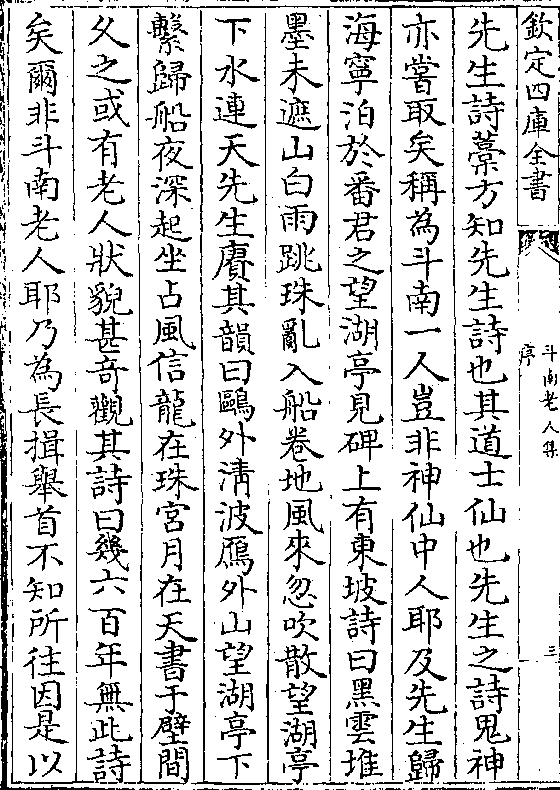 欽定四庫全書
斗南老人集
序
三
先生詩藁方知先生詩也其道士仙也先生之詩鬼神
亦嘗取矣稱為斗南一人豈非神仙中人耶及先生歸
海寧泊於番君之望湖亭見碑上有東坡詩曰黑雲堆
墨未遮山白雨跳珠亂入船卷地風來忽吹散望湖亭
下水連天先生賡其韻曰鷗外清波鴈外山望湖亭下
繫歸船夜深起坐占風信龍在珠宮月在天書于壁間
久之或有老人狀貌甚奇觀其詩曰幾六百年無此詩
矣爾非斗南老人耶乃為長揖舉首不知所往因是以